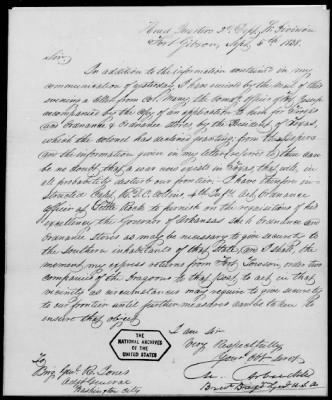 Head Quarters 2d Dept. W. Division
Fort Gibson, Sept. 5th 1838.
Sir,
In addition to the information contained in my
communication of yesterday, I have received by the mail of this
evening a letter from Col. Many the Comdg. officer of Fort Jessup
accompanied by the copy of an application to him for Arms
and Ordnance & Ordnance stores by the Authority of Texas,
which the colonel has declined granting; from these papers
and the information given in my letter referred to, there can
be no doubt, that a war now exists in Texas that will, in
all probability disturb our frontier. I have therefore in-
structed Capt. R. D. C. Collins 4th Inf. Act. Ordnance
Officer at Little Rock to furnish on the requisitions of his
excellency the Governor of Arkansas such Ordnance and
Ordnance Stores as may be necessary to give security to
the southern inhabitants of that State, and I shall, the
moment, my express returns from Fort Towson, order two
companies of the Dragoons to that post, to act in that
vicinity as circumstances may require to give security to
our frontier until further measures can be taken to
ensure that object.
I am Sir
Very Respectfully
Your Obt. Servt.
M. Arbuckle
Brevt. Brigr. Genl. U.S.A.
To
Brig. Genl. R. Jones
Adjt. General
Washington City
THE
NATIONAL ARCHIVES
OF THE
UNITED STATES